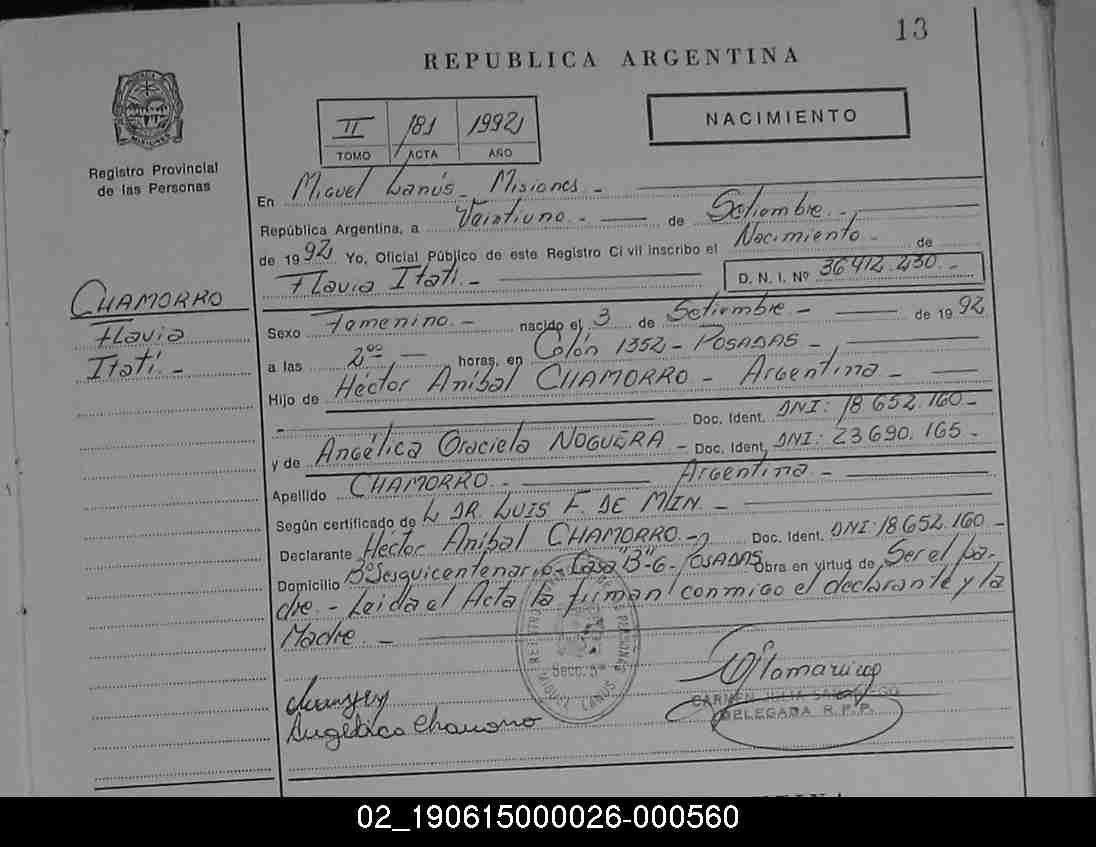 13
REPUBLICA ARGENTINA
MISIONES
Registro Provincial
de las Personas
II 181 1992
TOMO ACTA AÑO
NACIMIENTO
En Miguel Lanús - Misiones -
República Argentina, a Veintiuno - de Setiembre -
de 1992 Yo, Oficial Público de este Registro Civil inscribo el Nacimiento - de
Flavia Itatí - D. N. I. Nº 36 412.230 -
CHAMORRO
Flavia
Itatí. -
Sexo Femenino - nacido el 3 de Setiembre - de 1992
a las 2⁰⁰ - horas, en Colón 1352 - POSADAS -
Hijo de Héctor Aníbal CHAMORRO - Argentina -
- Doc. Ident. DNI: 18.652.160 -
y de Angélica Graciela NOGUERA - Doc. Ident. DNI: 23690.165 -
Argentina. -
Apellido CHAMORRO. -
Según certificado de DR. LUIS F. DE MIN. -
Declarante Héctor Aníbal CHAMORRO. - Doc. Ident. DNI: 18652.160 -
Domicilio Bº Sesquicentenario - Casa "B"-6- POSADAS Obra en virtud de Ser el pa-
dre. - Leida el Acta la firman conmigo el declarante y la
Madre. -
Secc. 5ª
MIGUEL LANUS
Angélica Chamorro
CARMEN JULIA
DELEGADA R.P.P.
02_190615000026-000560